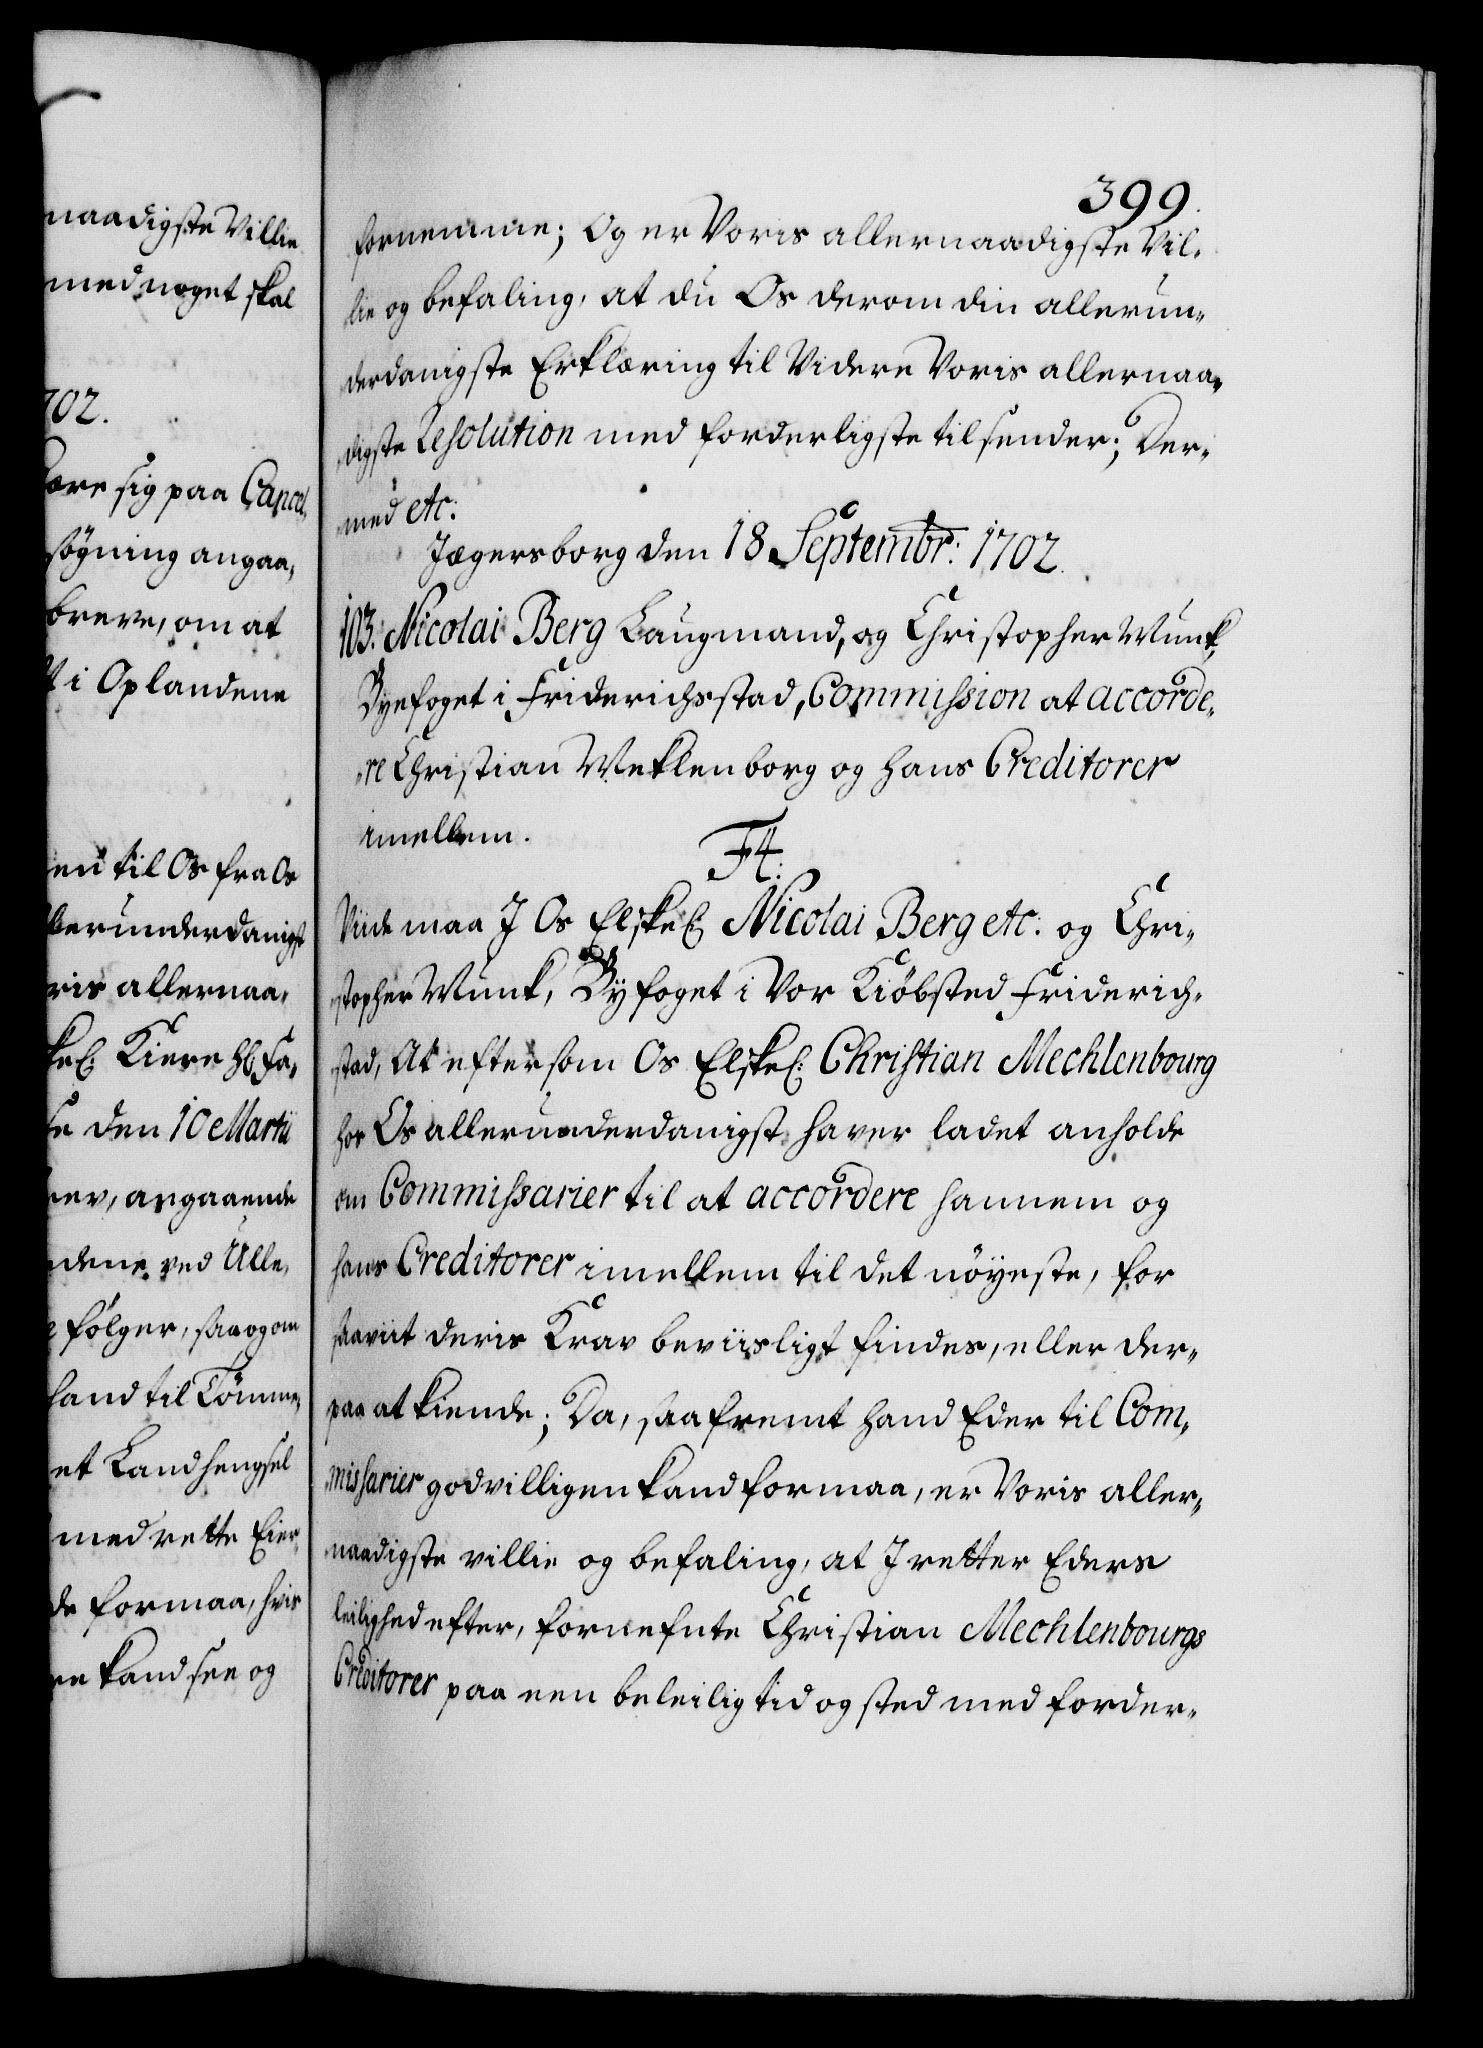 naadigste Villie
med noget skal
702.
lære sig paa Cancel,
søgning angaa,
breve, om at
t i Oplandene
en til Os fra Os
llerunderdanigst
ris allernaa,
skel: Kiere Hl Fa,
se den 10 Martii
rev, angaaende
dene ved Ulle,
e følger, saa og om
hand til Tömme,
et Landhengsel
med rette Eier,
de formaa, hvis
re kand see og
399.
fornemme; Og er Voris allernaadigste Vil,
lie og befaling, at du Os derom din allerun,
derdanigste Erklæring til Videre Voris allernaa,
digste Resolution med forderligste tilsender; Der,
med etc:
Jægersborg den 18 Septembr: 1702.
103. Nicolai Berg Laugmand, og Christopher Munk,
Byefoget i Friderichsstad, Commission at accorde,
re Christian Meklenborg og hans Creditorer
imellem.
F4.
Viide maa J Os Elskel: Nicolai Berg etc: og Chri,
stopher Munk, Byfoget i Vor Kiöbsted Friderich,
stad, At eftersom Os Elskel: Christian Mechlenbourg
hos Os allerunderdanigst haver ladet anholde
om Commissarier til at accordere hannem og
hans Creditorer imellem til det nöyeste, for
saaviit deris Krav beviisligt findes, eller der,
paa at kiende; Da, saafremt hand Eder til Com,
missarier godvilligen kand formaa, er Voris aller,
naadigste villie og befaling, at J retter Eders
leilighed efter, fornefnte Christian Mechlenbourgs
Creditorer paa een beleilig tid og sted med forder,